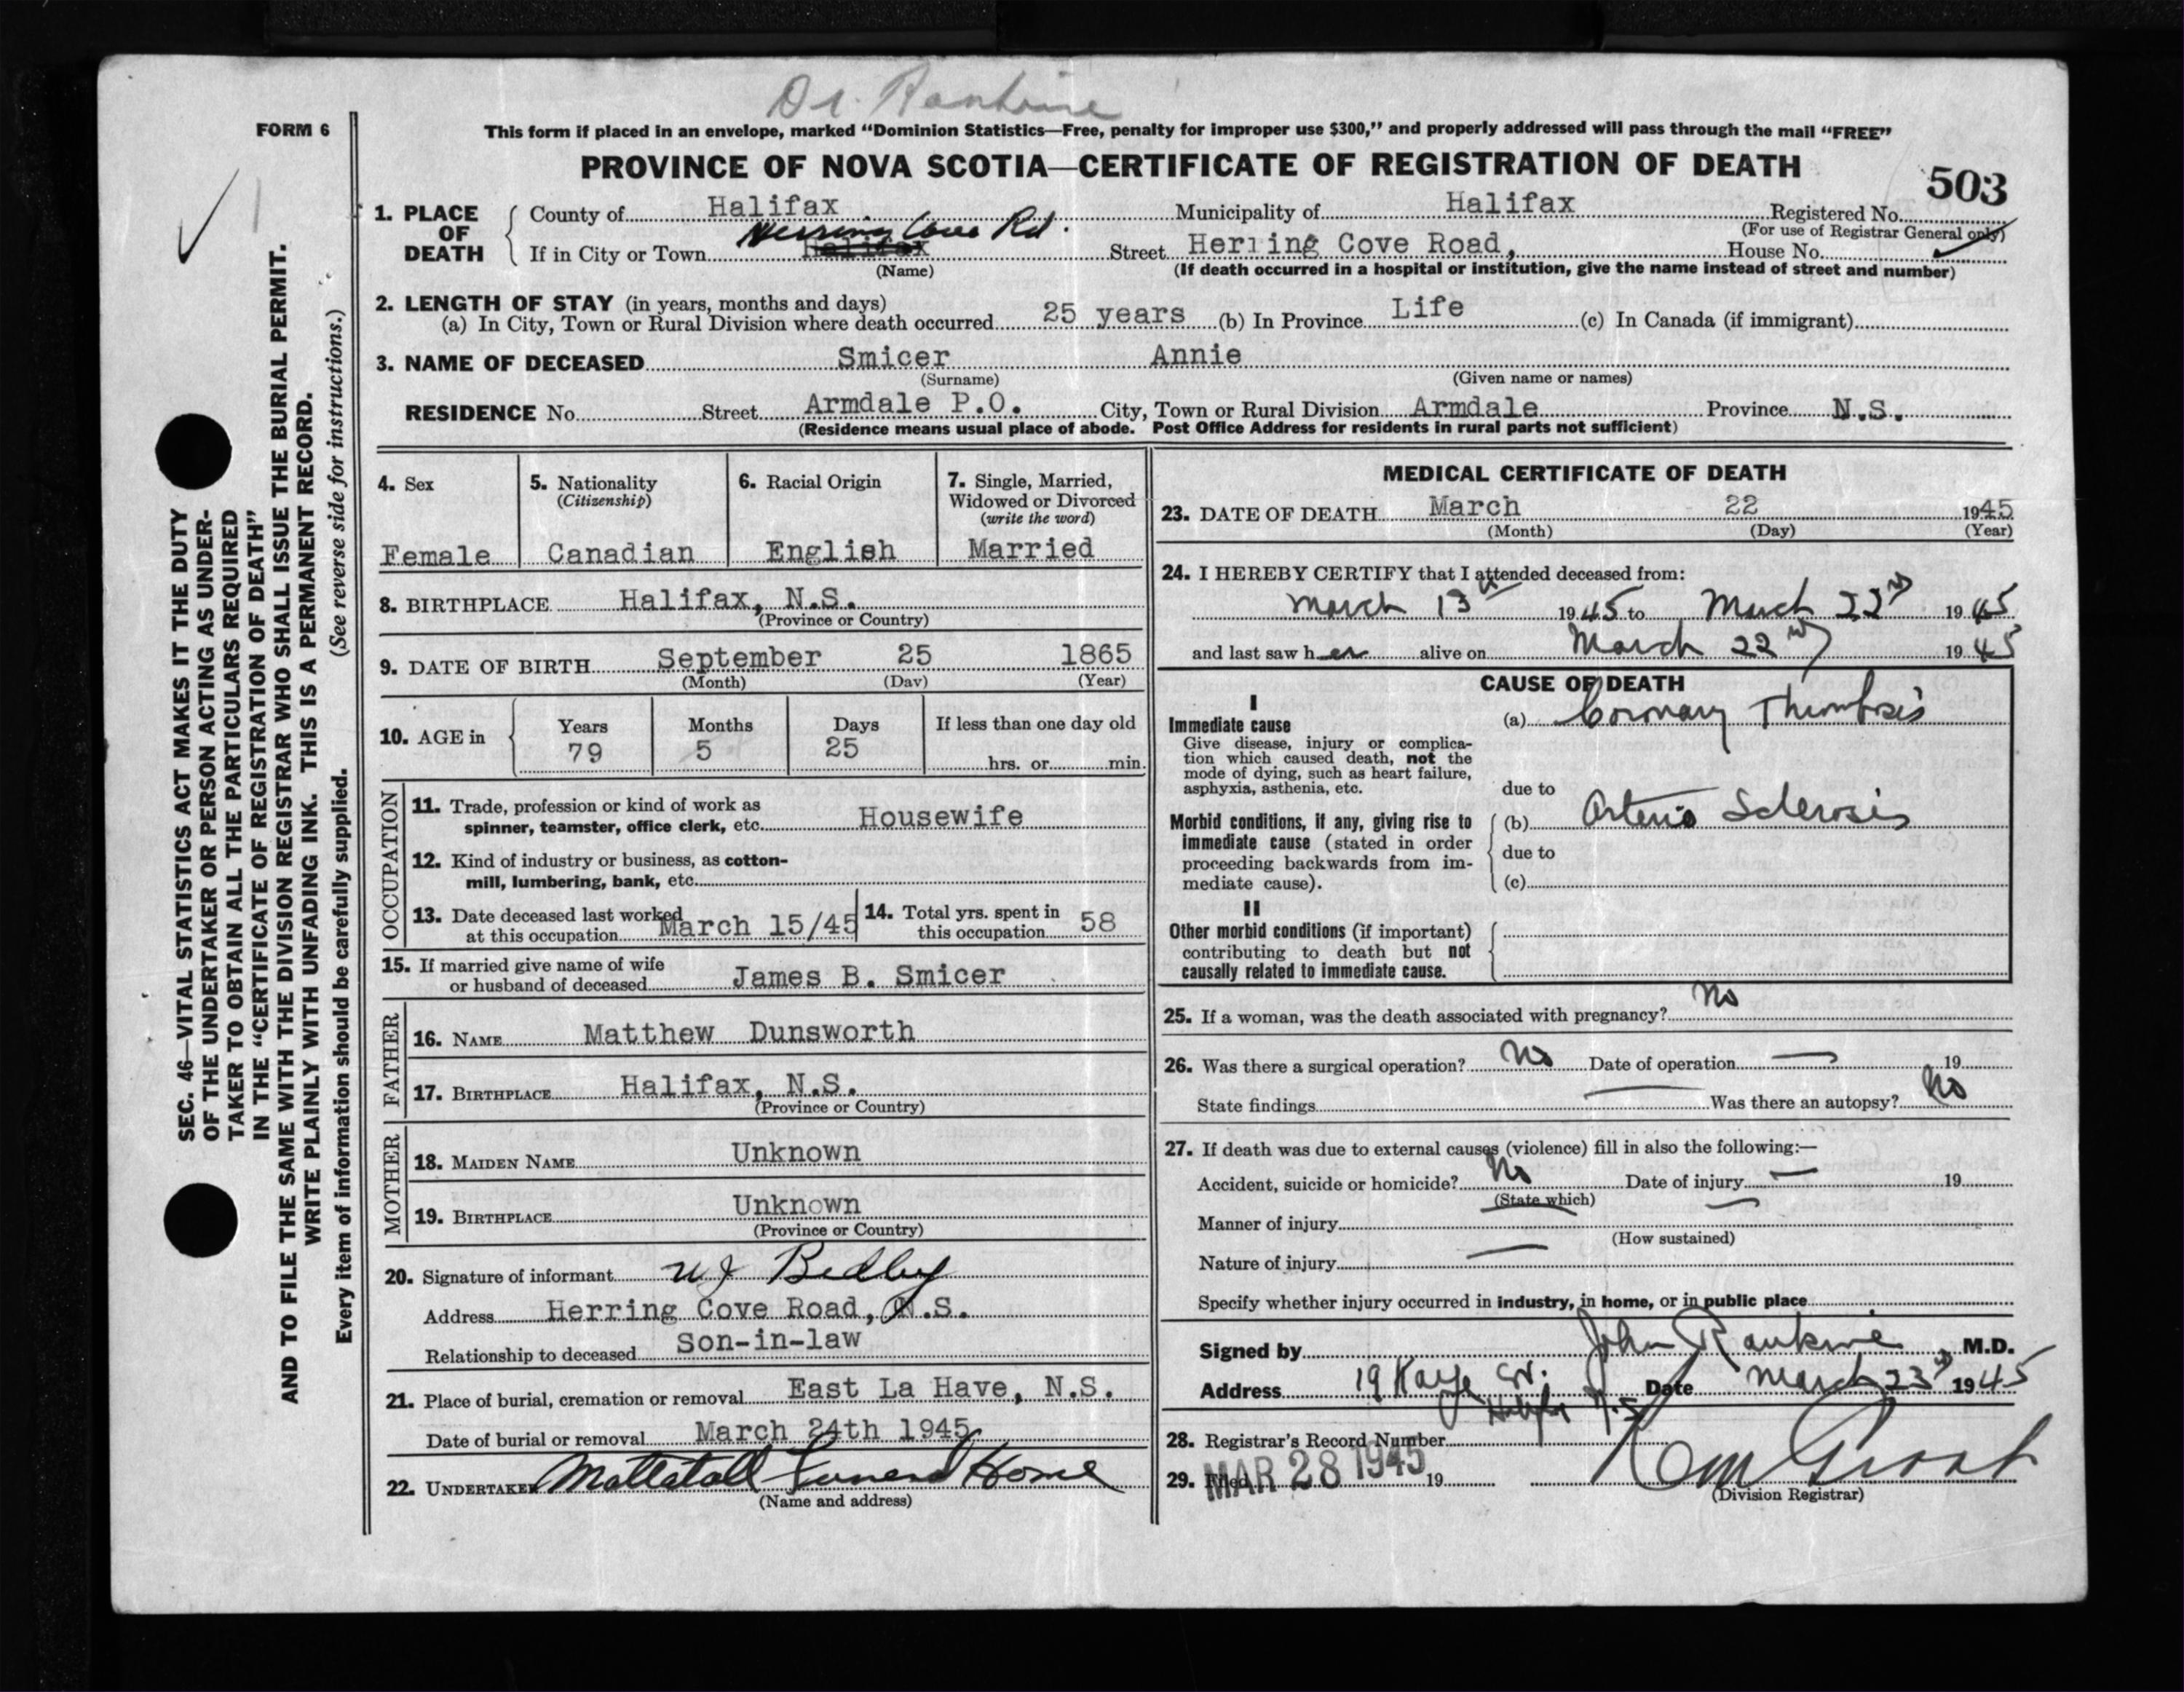 Dr. Rankine
FORM 6
This form if placed in an envelope, marked “Dominion Statistics—Free, penalty for improper use $300,” and properly addressed will pass through the mail “FREE”
PROVINCE OF NOVA SCOTIA—CERTIFICATE OF REGISTRATION OF DEATH
503
1. PLACE OF DEATH
County of Halifax Municipality of Halifax Registered No.
(For use of Registrar General only)
Herring Cove Rd.
If in City or Town Halifax Street Herring Cove Road, House No.
(Name) (If death occurred in a hospital or institution, give the name instead of street and number)
2. LENGTH OF STAY (in years, months and days)
(a) In City, Town or Rural Division where death occurred 25 years (b) In Province Life (c) In Canada (if immigrant)
3. NAME OF DECEASED Smicer Annie
(Surname) (Given name or names)
RESIDENCE No Street Armdale P.O. City, Town or Rural Division Armdale Province N.S.
(Residence means usual place of abode. Post Office Address for residents in rural parts not sufficient)
4. Sex
Female
5. Nationality
(Citizenship)
Canadian
6. Racial Origin
English
7. Single, Married,
Widowed or Divorced
(write the word)
Married
8. BIRTHPLACE Halifax, N.S.
(Province or Country)
9. DATE OF BIRTH September 25 1865
(Month) (Day) (Year)
10. AGE in
Years Months Days If less than one day old
79 5 25 hrs. or min.
OCCUPATION
11. Trade, profession or kind of work as
spinner, teamster, office clerk, etc. Housewife
12. Kind of industry or business, as cotton-
mill, lumbering, bank, etc.
13. Date deceased last worked
at this occupation March 15/45
14. Total yrs. spent in
this occupation 58
15. If married give name of wife
or husband of deceased James B. Smicer
FATHER
16. NAME Matthew Dunsworth
17. BIRTHPLACE Halifax, N.S.
(Province or Country)
MOTHER
18. MAIDEN NAME Unknown
19. BIRTHPLACE Unknown
(Province or Country)
20. Signature of informant W J Bedby
Address Herring Cove Road, N.S.
Relationship to deceased Son-in-law
21. Place of burial, cremation or removal East La Have, N.S.
Date of burial or removal March 24th 1945
22. UNDERTAKER Mattatall Funeral Home
(Name and address)
MEDICAL CERTIFICATE OF DEATH
23. DATE OF DEATH March 22 1945
(Month) (Day) (Year)
24. I HEREBY CERTIFY that I attended deceased from:
March 13th 1945 to March 22nd 1945
and last saw her alive on March 22nd 1945
CAUSE OF DEATH
I
Immediate cause
Give disease, injury or complica-
tion which caused death, not the
mode of dying, such as heart failure,
asphyxia, asthenia, etc.
(a) Coronary Thrombosis
due to
Morbid conditions, if any, giving rise to
immediate cause (stated in order
proceeding backwards from im-
mediate cause).
(b) Arterio Sclerosis
due to
(c)
II
Other morbid conditions (if important)
contributing to death but not
causally related to immediate cause.
25. If a woman, was the death associated with pregnancy? No
26. Was there a surgical operation? No Date of operation — 19
State findings — Was there an autopsy? No
27. If death was due to external causes (violence) fill in also the following:—
Accident, suicide or homicide? No Date of injury — 19
(State which)
Manner of injury —
(How sustained)
Nature of injury —
Specify whether injury occurred in industry, in home, or in public place
Signed by John Rankine M.D.
Address 19 Kaye St. Halifax N.S. Date March 23rd 1945
28. Registrar's Record Number
29. Filed MAR 28 1945 19
(Division Registrar)
SEC. 46—VITAL STATISTICS ACT MAKES IT THE DUTY
OF THE UNDERTAKER OR PERSON ACTING AS UNDER-
TAKER TO OBTAIN ALL THE PARTICULARS REQUIRED
IN THE “CERTIFICATE OF REGISTRATION OF DEATH”
AND TO FILE THE SAME WITH THE DIVISION REGISTRAR WHO SHALL ISSUE THE BURIAL PERMIT.
WRITE PLAINLY WITH UNFADING INK. THIS IS A PERMANENT RECORD.
Every item of information should be carefully supplied. (See reverse side for instructions.)